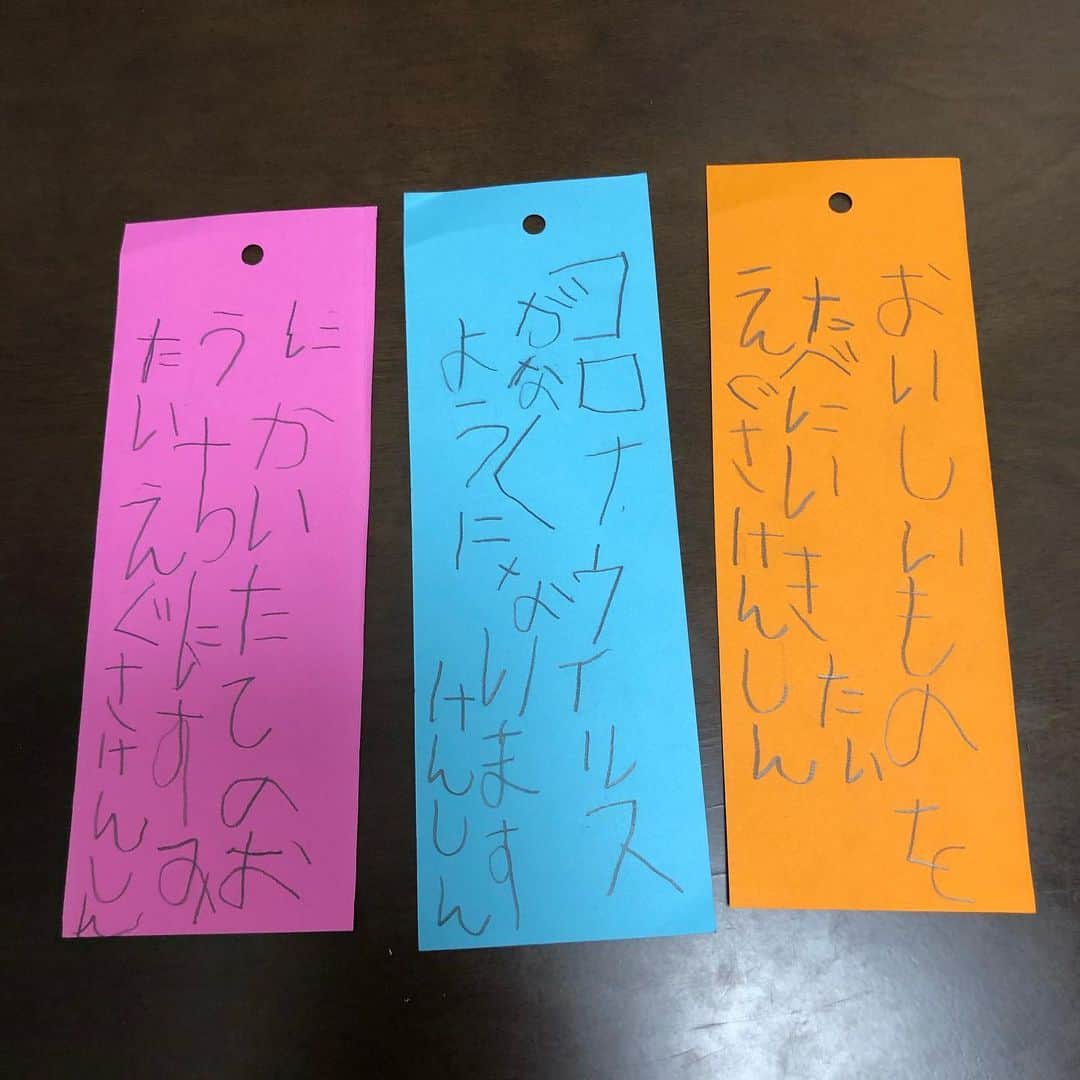 おいしいものを
たべにいきたい
えぐさけんしん
コロナウイルス
がなくなります
ように けんしん
にかいたてのお
うちにすみ
たい えぐさけんしん